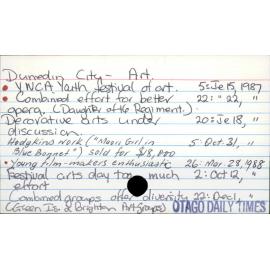 Dunedin City - Art.
• YNCA Youth festival of art. 5: Je 15, 1987
• Combined effort for better 22: " 22, "
opera. (Daughter of the Regiment).
Decorative arts under 20: Je 18, "
discussion.
Hodgkins work ("Maori Girl in 5: Oct. 31, "
Blue Bonnet") sold for $18,000
• Young film-makers enthusiastic 26: Mar. 28, 1988
Festival arts day too much 2: Oct 12, "
effort
Combined groups offer diversity 22: Dec 1, "
(Green Is. & Brighton Art groups) OTAGO DAILY TIMES